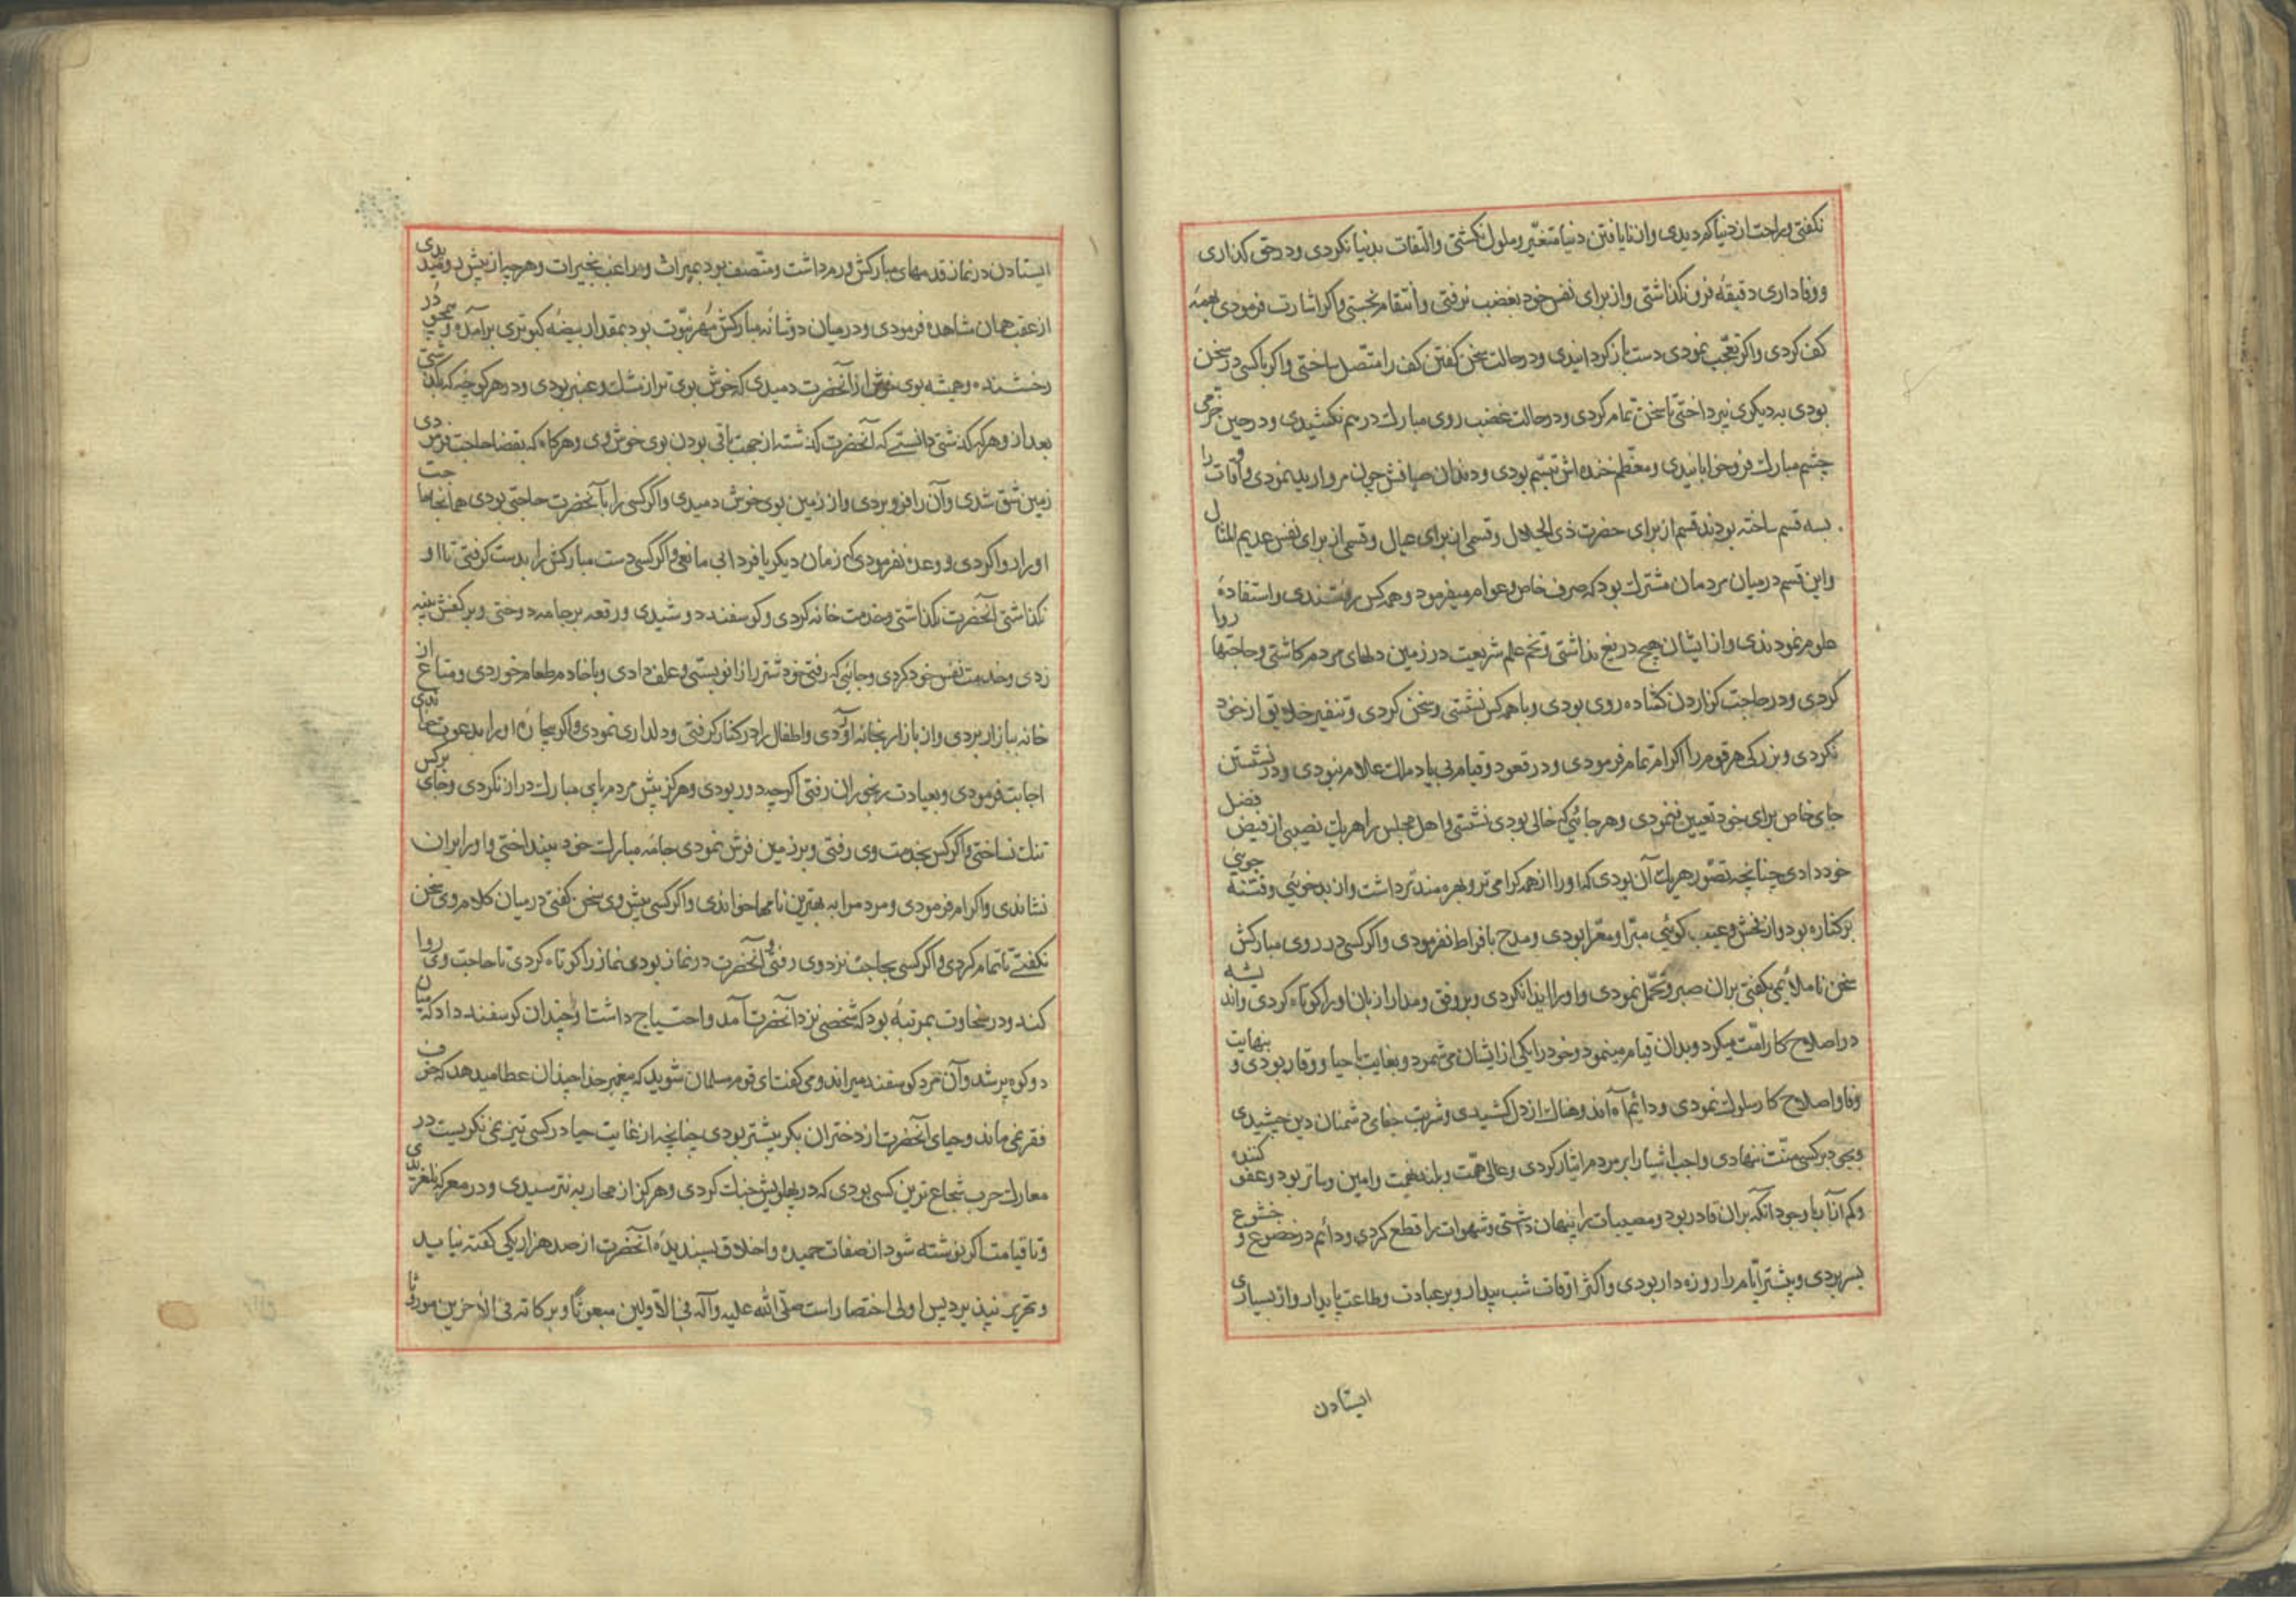 نکفتی و راحت از دنیا کردیدی و از نایافتن دنیا متغیّر و ملول نکشتی و التفات بدنیا نکردی و در حق کذاری
و وفاداری دقیقهٔ فرو نکذاشتی و از برای نفس خود بغضب نرفتی و انتقام نجستی و اکر اشارت فرمودی بهمهٔ
کف کردی و اکر تعجّب نمودی دست باز کردانیدی و در حالت سخن کفتن کف را متّصل ساختی و اکر با کسی در سخن
بودی به دیکری نپرداختی تا سخن تمام کردی و در حالت غضب روی مبارک درهم نکشیدی و در حین خرّمی
چشم مبارک فرو خوابانیدی و معظم خنده اش تبسّم بودی و دندان صافش چون مروارید نمودی و اوقات را
بسه قسم ساخته بودند قسم از برای حضرت ذی الجلال و قسمی از برای عیال و قسمی از برای نفس عدیم المثال
و این قسم در میان مردمان مشترک بود که صرف خاص و عوام میفرمود و همه کس میرفتندی و استفادهٔ
علوم نمودندی و از ایشان هیچ دریغ نداشتی و تخم علم شریعت در زمین دلهای مردم کاشتی و حاجتها روا
کردی و در حاجت کزاردن کشاده روی بودی و با همه کس نشستی و سخن کردی و تنفیر خلایق از خود
نکردی و بزرکی هر قوم را اکرام تمام فرمودی و در قعود و قیام بی یاد ملک علام نبودی و در نشستن
جای خاص برای خود تعیین ننمودی و هر جائی که خالی بودی نشستی و اهل مجلس را هر یک نصیبی از فیض فضل
خود دادی چنانچه تصوّر هر یک آن بودی که او را از همه کرامی تر و بهره مندتر داشت و از بدخوئی و فتنه جوئی
بر کناره بود و از فحش و عیب کوئی مبرّا و معرّا بودی و مدح بافراط نفرمودی و اکر کسی در روی مبارکش
سخن ناملائمی بکفتی بران صبر و تحمّل نمودی و او را ایذا نکردی و برفق و مدارا زبان او را کوتاه کردی و اندیشه
در اصلاح کار امّت میکرد و بدان قیام مینمود و خود را یکی از ایشان می شمرد و بغایت با حیا و وقار بودی و بنهایت
وفا و اصلاح کار سلوک نمودی و دائم آه اندوهناک از دل کشیدی و شربت جفای دشمنان دین چشیدی
و بر کسی منّت ننهادی و واجب اشیا را بر مردم ایثار کردی و عالی همّت و بلند نهمت و امین و ساتر بود و عفو کننده
و کم آزار با وجود آنکه بران قادر بود و مصیبات را پنهان داشتی و شهوات را قطع کردی و دائم در خضوع و خشوع
بسر بردی و بیشتر ایّام را روزه دار بودی و اکثر اوقات شب بیدار و بر عبادت و طاعت پایدار و از بسیاری
ایستادن
ایستادن در نماز قدمهای مبارکش ورم داشت و متّصف بود بمیراث و مراغب بخیرات و هر چه از پیش رو میدیدی
از عقب همان مشاهده فرمودی و در میان دو شانهٔ مبارکش مهر نبوّت بود بمقدار بیضهٔ کبوتری برآمده و همچو در
رخشنده و همیشه بوی خوش از آنحضرت دمیدی که خوش بوی تر از مشک و عنبر بودی و در هر کوچه که بکذشتی
بعد از و هر که کذشتی دانستی که آنحضرت کذشته از جهت باقی بودن بوی خوش وی و هر کاه که بقضا حاجت فرمودی
زمین شق شدی و آن را فرو بردی و از زمین بوی خوش دمیدی و اکر کسی را بآنحضرت حاجتی بودی همانجا حاجت
او را روا کردی و وعده نفرمودی که زمان دیکر یا فردا بی مانعی و اکر کسی دست مبارکش را بدست کرفتی تا او
نکذاشتی آنحضرت نکذاشتی و خدمت خانه کردی و کوسفند دوشیدی و رقعه بر جامه دوختی و بر کفش پینه
زدی و خدمت نفس خود کردی و جائی که رفتی خود شتر را زانو بستی و علف دادی و با خادم طعام خوردی و متاع از
خانه ببازار بردی و از بازار بخانه آوردی و اطفال را در کنار کرفتی و دلداری نمودی و اکر بیچارهٔ او را بدعوت خواندی
اجابت فرمودی و بعیادت رنجوران رفتی اکرچه دور بودی و هرکز پیش مردم پای مبارک دراز نکردی و جای بر کس
تنک نساختی و اکر کس بخدمت وی رفتی و بر زمین فرش نمودی جامهٔ مبارک خود بینداختی و او را بران
نشاندی و اکرام فرمودی و مردم را به بهترین نامها خواندی و اکر کسی پیش وی سخن کفتی در میان کلام وی سخن
نکفتی تا تمام کردی و اکر کسی بحاجت نزد وی رفتی و آنحضرت در نماز بودی نماز را کوتاه کردی تا حاجت وی روا
کند و در سخاوت بمرتبهٔ بود که شخصی نزد آنحضرت آمد و احتیاج داشت او را چندان کوسفند داد که میان
دو کوه پر شد و آن مرد کوسفند میراند و می کفت ای قوم مسلمان شوید که پیغمبر خدا چندان عطا میدهد که خوف
فقر نمی ماند و حیای آنحضرت از دختران بکر بیشتر بودی چنانچه از غایت حیا در کسی تیز نمی نکریست در
معارک حرب شجاع ترین کسی بودی که در پهلویش جنک کردی و هرکز از محاربه نترسیدی و در معرکه نلغزیدی
و تا قیامت اکر نوشته شود از صفات حمیده و اخلاق پسندیدهٔ آنحضرت از صد هزار یکی کفته نیاید
و تحریر نپذیرد پس اولی اختصار است صلّی الله علیه و آله فی الاوّلین مبعوثا و برکاته فی الآخرین موروثا